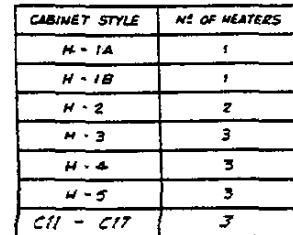 CABINET STYLE Nº OF HEATERS
H - 1A 1
H - 1B 1
H - 2 2
H - 3 3
H - 4 3
H - 5 3
C11 - C17 3